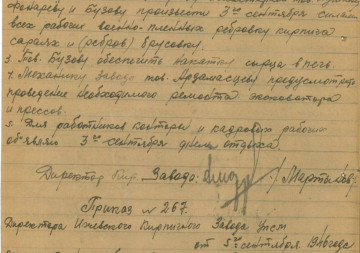 Фонареву и Бузову произвести 3го сентября силами
всех рабочих военно-пленных ребровку кирпича
сараях и (ребров) брусовки.
3. Тов. Бузову обеспечить накатом сырца в печь.
4. Механику завода тов. предусмотреть
проведение необходимого ремонта экскаватора
и прессов.
5. Для работников конторы и кадровых рабочих
объявляю 3го сентября днём отдыха.
Директор Кир. Завода: /Мартынов/
Приказ № 267.
Директора Ижевского Кирпичного Завода
от 5го сентября 1946 года